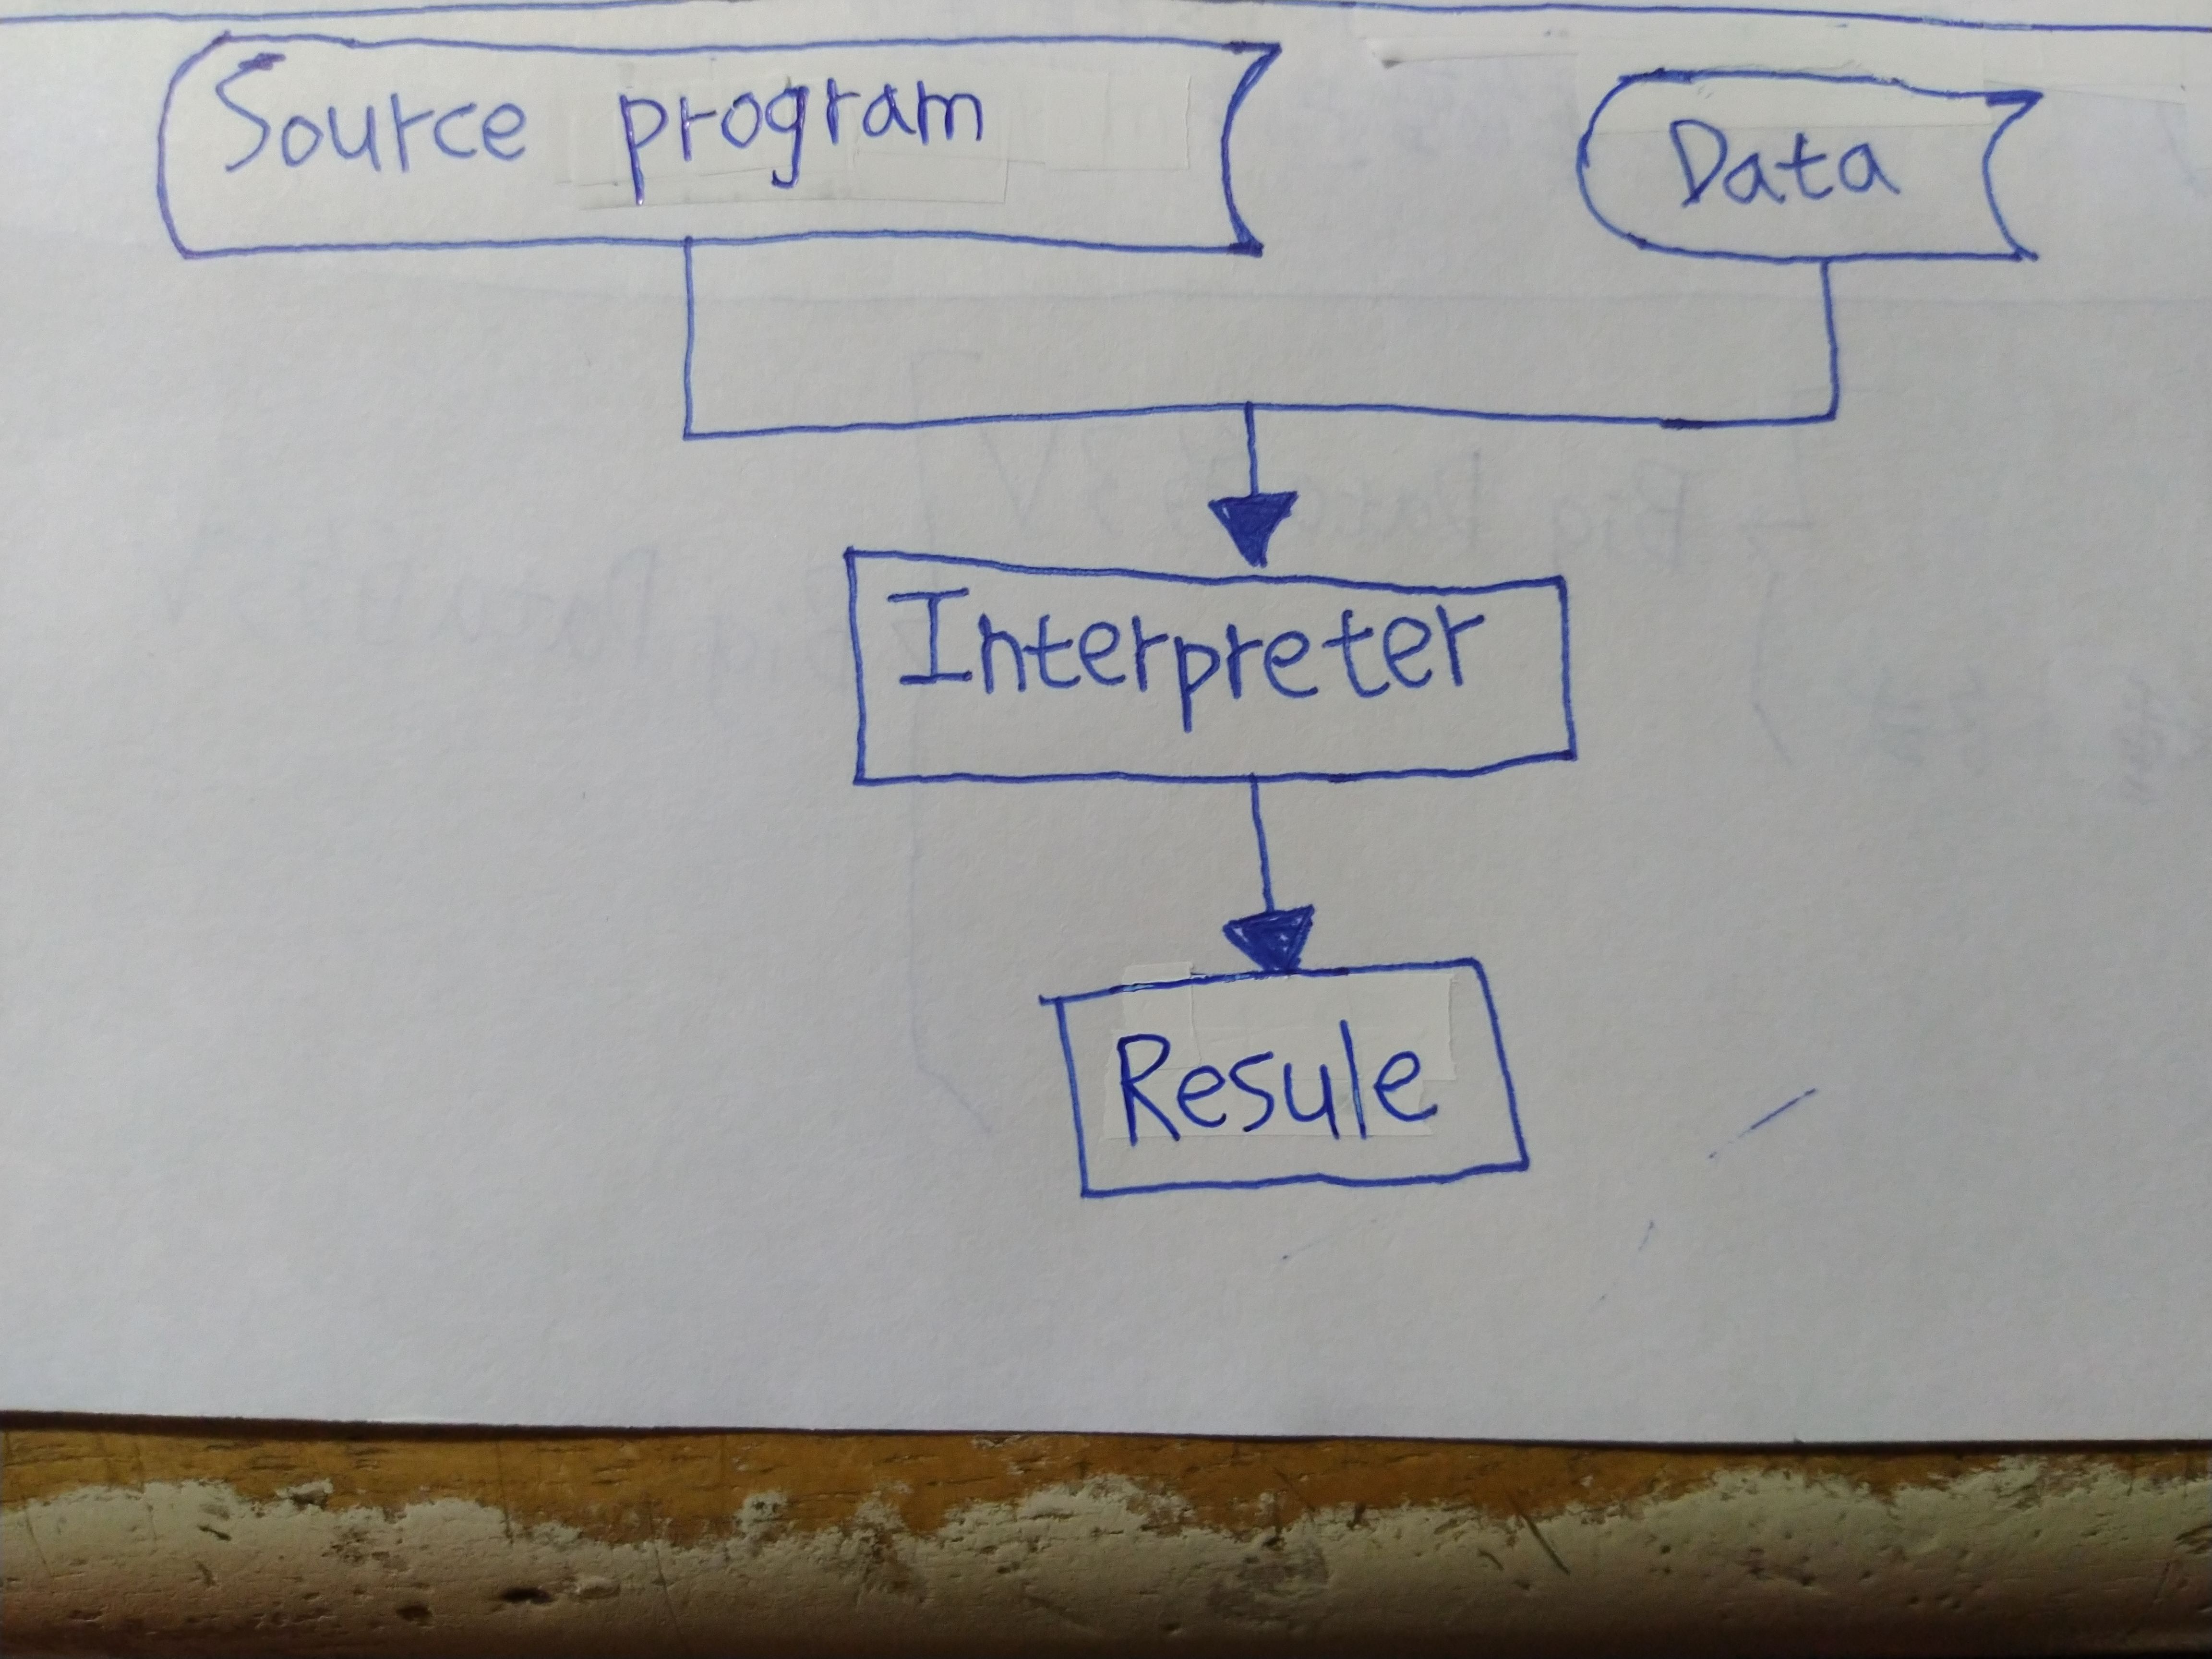 Source program
Data
Interpreter
Resule